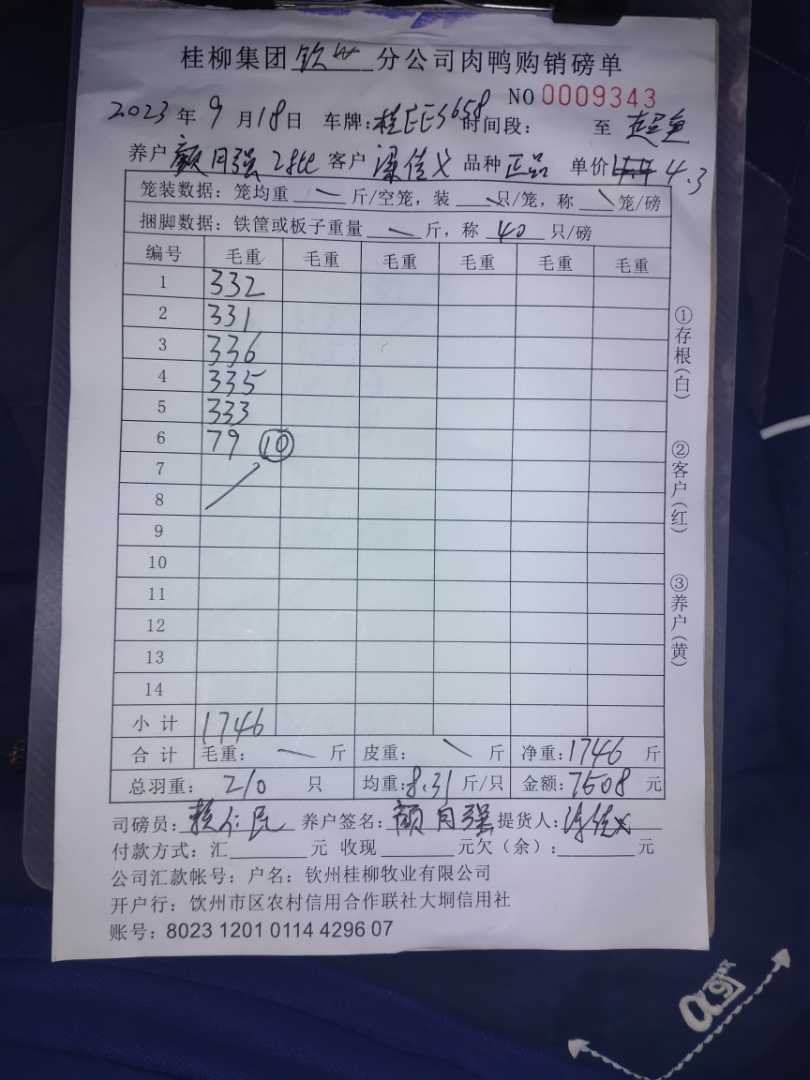 桂柳集团钦州分公司肉鸭购销磅单
NO 0009343
2023年9月18日 车牌:桂EES658时间段: 至
养户颜月强2批 客户梁信义 品种正品 单价4.3
笼装数据:笼均重 斤/空笼,装 只/笼,称 笼/磅
捆脚数据:铁筐或板子重量 斤,称 40 只/磅
编号 毛重 毛重 毛重 毛重 毛重 毛重
1 332
2 331
3 336
4 335
5 333
6 79 10
7
8
9
10
11
12
13
14
小计 1746
合计 毛重: 斤 皮重: 斤 净重:1746 斤
总羽重: 210 只 均重:8.31 斤/只 金额:7508 元
司磅员: 养户签名:颜月强 提货人:
付款方式:汇 元 收现 元欠(余): 元
公司汇款帐号:户名:钦州桂柳牧业有限公司
开户行:饮州市区农村信用合作联社大垌信用社
账号:8023 1201 0114 4296 07
①存根(白)
②客户(红)
③养户(黄)